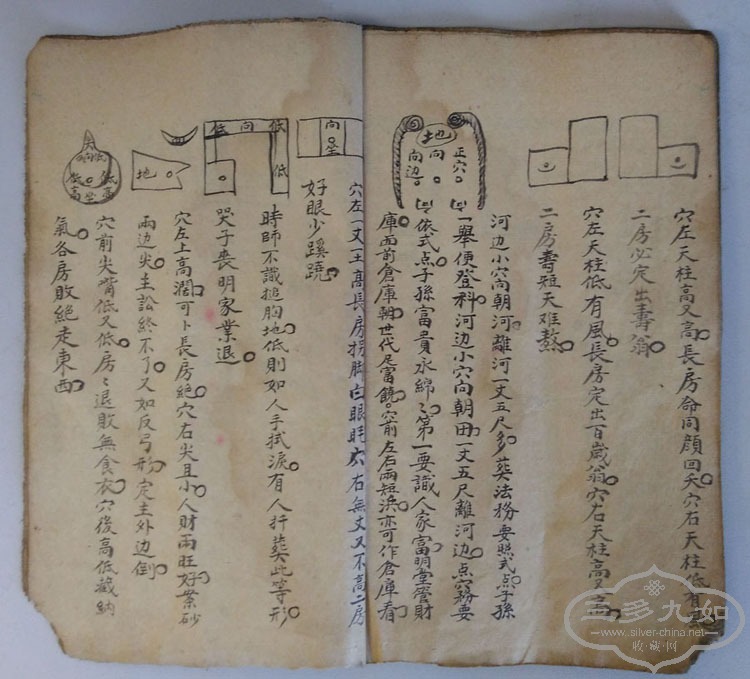 穴左天柱高又高長房命同顏回夭穴右天柱低有
二房必定出壽翁
穴左天柱低有風長房定出百歲翁穴右天柱高又高
二房壽短天难熬
地
正穴
向
向边
河边小穴向朝河離河一丈五尺多葬法務要照式点子孫
一舉便登科河边小穴向朝田一丈五尺離河边点穴務要
依式点子孫富貴永綿〻第一要識人家富明堂管財
庫面前倉庫朝世代足富饒穴前左右兩短浜亦可作倉庫看
穴左一丈一土高長房拐脚白眼眊穴右無丈又不高二房
好眼少蹊蹺
向
坐
低 向 低
低
時師不識搥胸地低則如人手拭淚有人扞葬此等形
哭子喪明家業退
穴左上高濶可卜長房絶穴右尖且小人財兩旺好業砂
地
兩边尖主訟終不了又如反弓形定主外边倒
尖
向
低
低
低
高
坐
高
穴前尖嘴低又低房〻退敗無食衣穴後高低藏納
氣各房敗絶走東西
三多九如
www.silver-china.net
收·藏·网